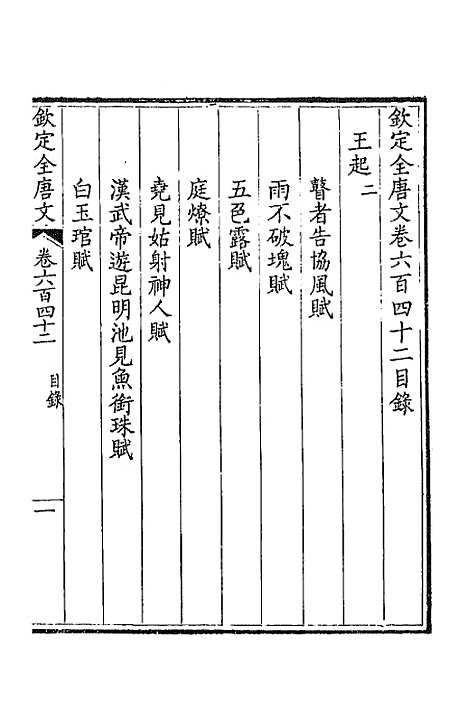 欽定全唐文卷六百四十二目錄
王起二
瞽者告協風賦
雨不破塊賦
五色露賦
庭燎賦
堯見姑射神人賦
漢武帝遊昆明池見魚銜珠賦
白玉琯賦
欽定全唐文 卷六百四十二 目錄 一